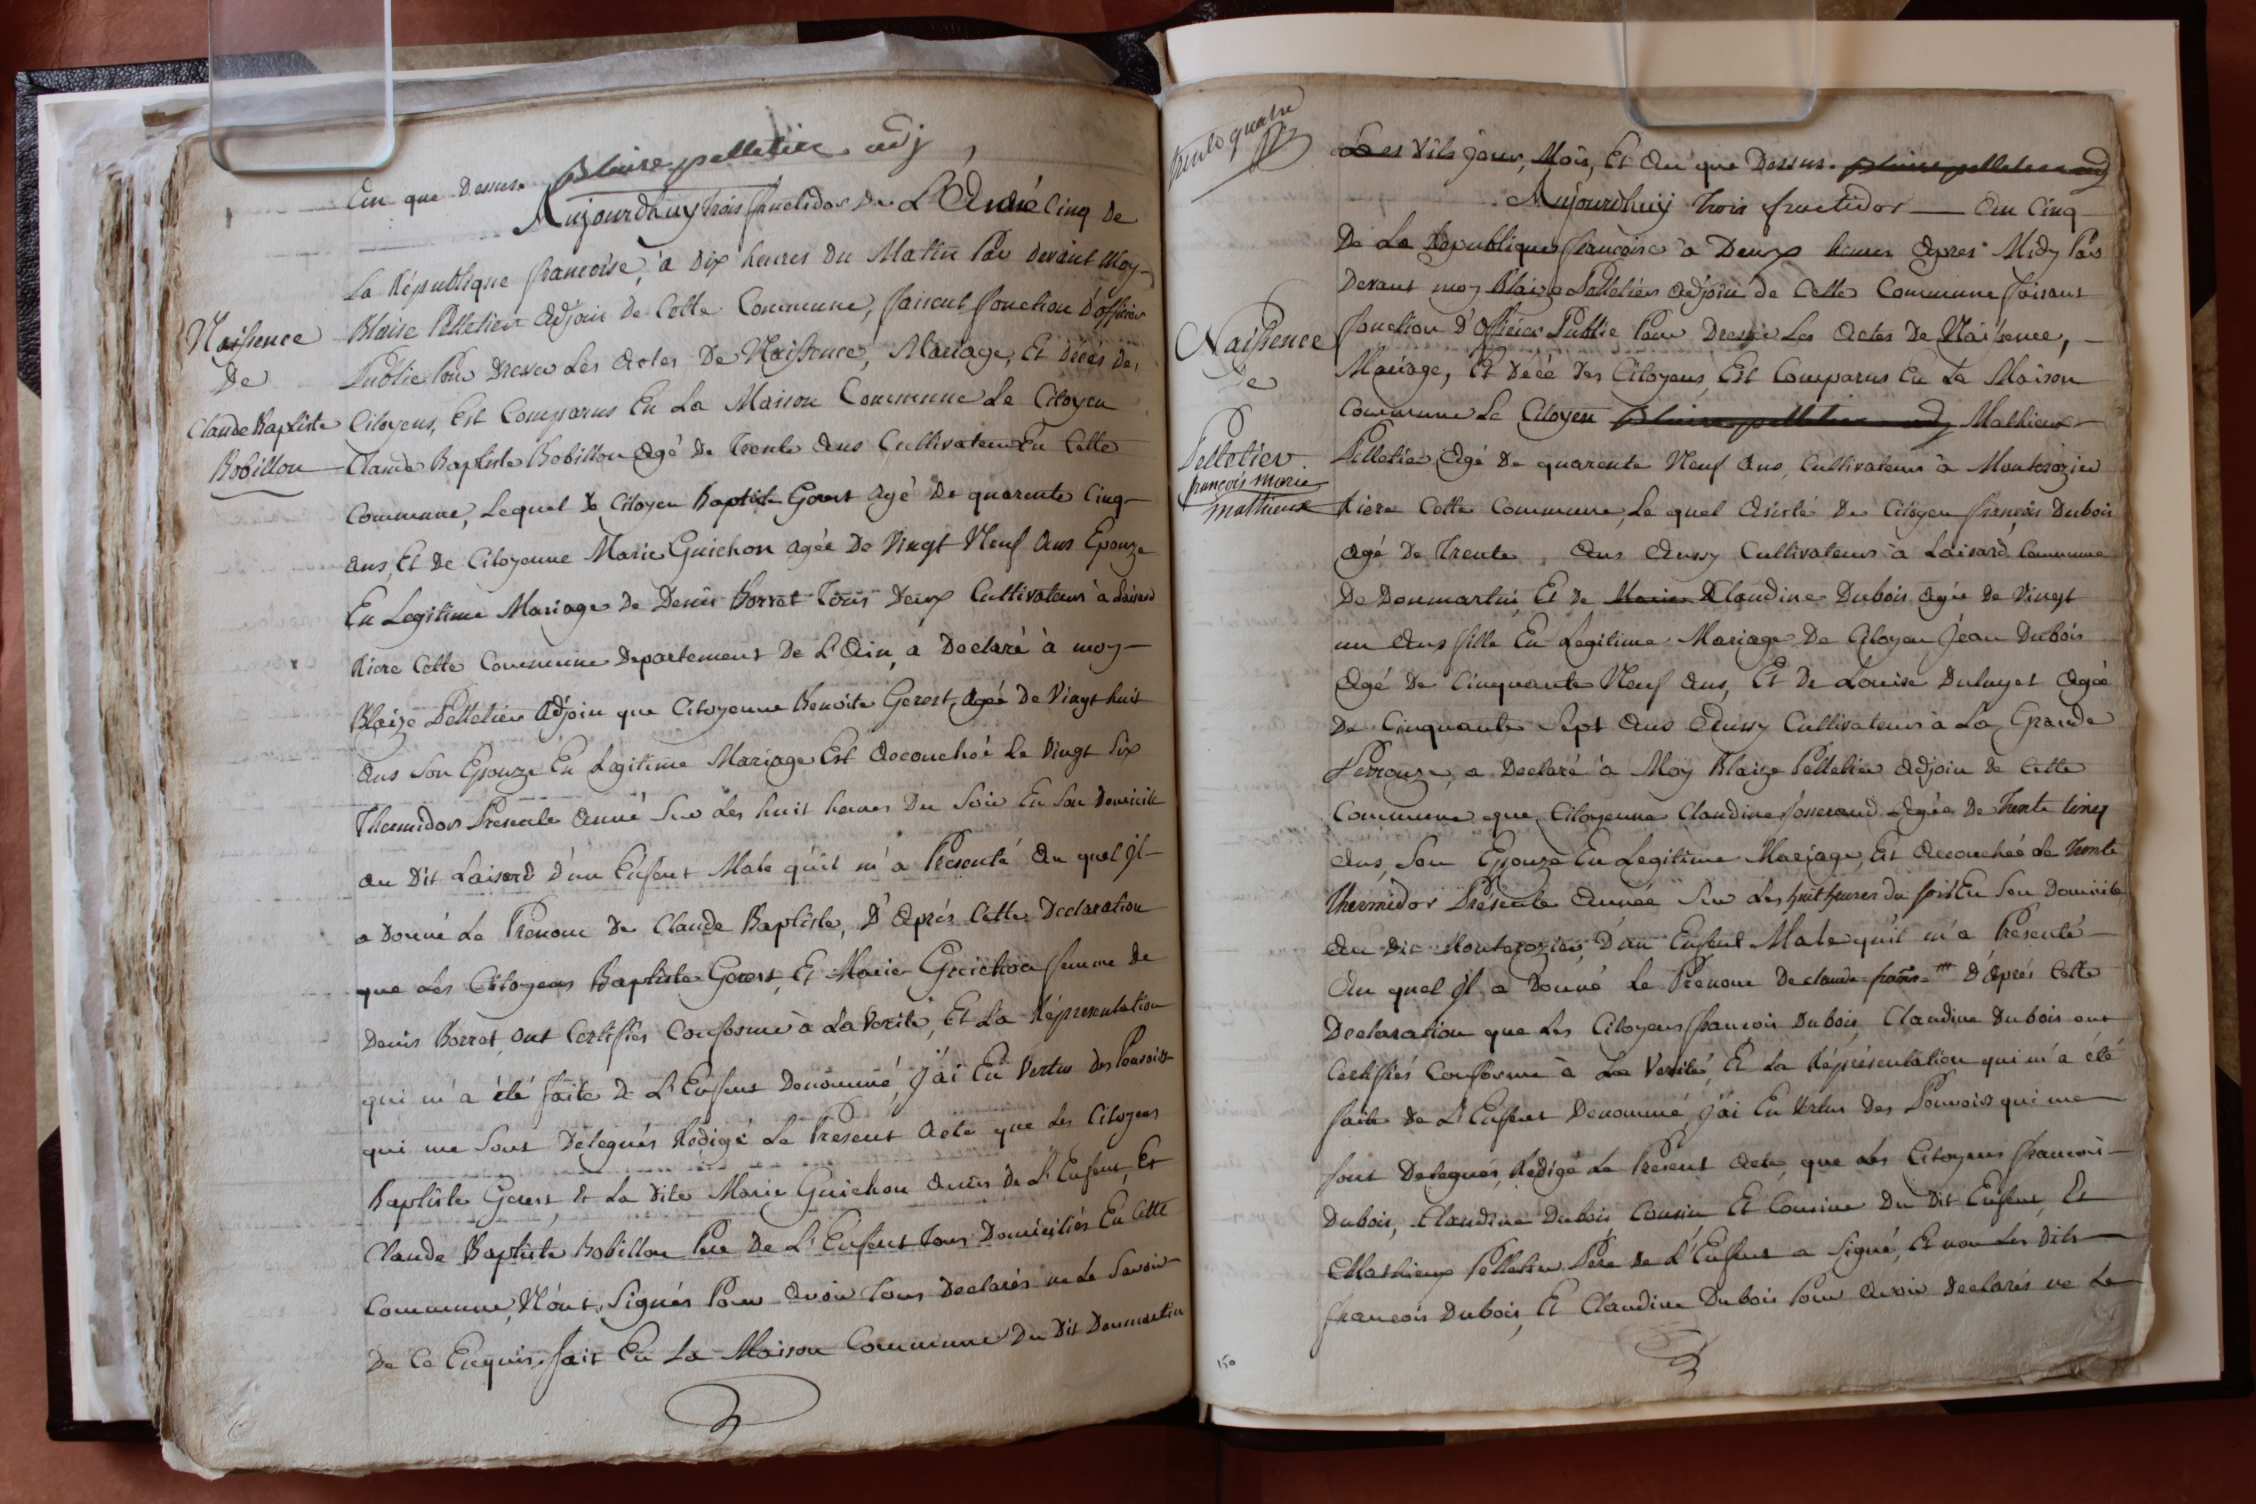 En que Dessus. Blaise pelletier adj
Aujourdhuy trois fructidor De L'Année Cinq De
La République francoise, à Dix heures Du Matin Par Devant Moy
Blaise Pelletier Adjoin De Cette Commune, faisant fonction D'officier
Public Pour Dresser Les Actes De Naissence, Mariage, Et Décés Des
Citoyens, Est Comparus En La Maison Commune Le Citoyen
Claude Baptiste Bobillon Agé De Trente Ans Cultivateur En Cette
Commune, Lequel De Citoyen Baptiste Gerest Agé De quarente Cinq
ans, Et De Citoyenne Marie Guichon agée De Vingt Neuf Ans Epouze
En Legitime Mariage De Denis Borret Tous Deux Cultivateurs à Laisard
Riere Cette Commune Departement De L'Ain, a Declaré à moy
Blaize Pelletier Adjoin que Citoyenne Benoite Gerest, Agée De Vingt huit
Ans Son Epouze En Legitime Mariage Est Accouchée Le Vingt Six
Thermidor Presente Année Sur Les huit heures Du Soir En Son Domicile
Au Dit Laisard D'un Enfent Male qu'il m'a Presenté Au quel Il
a Donné Le Prenom De Claude Baptiste, D'Aprés Cette Declaration
que Les Citoyens Baptiste Gerest, Et Marie Guichon femme de
Denis Borret, Ont Certiffiés Conforme à La Verité, Et La Répresentation
qui m'a été faite De L'Enfent Denommé, J'ai En Vertus Des Pouvoirs
qui me Sont Delegués Rédigé Le Present Acte que Les Citoyens
Baptiste Gerest, Et La Dite Marie Guichon Amis De L'Enfent, Et
Claude Baptiste Bobillon Pere De L'Enfent Tous Domiciliés En Cette
Commune, N'ont Signés Pour Avoir Tous Declarés ne Le Savoir
De Ce Enquis. fait En La Maison Commune Du Dit Donmartin
Naissence
De
Claude Baptiste
Bobillon
trente quatre
Les Dits Jour, Mois, Et An que Dessus. Blaise pelletier adj
Aujourdhuy Trois fructidor An Cinq
De La Republique francoise à Deux heures Apres Midy Par
Devant moy Blaize Pelletier Adjoin de Cette Commune faisant
fonction D'officier Public Pour Dresser Les Actes De Naissence,
Mariage, Et Décé Des Citoyens, Est Comparus En La Maison
Commune Le Citoyen Blaise pelletier adj Mathieux
Pelletier Agé De quarente Neuf Ans, Cultivateur à Monterozier
Riere Cette Commune, Le quel Assisté De Citoyen francois Dubois
Agé De Trente Ans Aussy Cultivateur à Laisard Commune
De Donmartin, Et De Marie Claudine Dubois Agée De Vingt
un Ans fille En Legitime Mariage De Citoyen Jean Dubois
Agé De Cinquante Neuf Ans, Et De Louise Agée
De Cinquante Sept Ans Aussy Cultivateurs à La Grande
Perrouze, a Declaré à Moy Blaize Pelletier Adjoin De Cette
Commune que Citoyenne Claudine Agée De Trente Cinq
Ans, Son Epouze En Legitime Mariage, Est Accouchée le Trente
Thermidor Présente Année Sur Les huit heures du soir En Son Domicile
Au Dit Monterozier, D'un Enfent Male qu'il m'a Présenté
Au quel Il a Donné Le Prenom De claude D'Aprés Cette
Declaration que Les Citoyens francois Dubois, Claudine Dubois ont
Certiffiés Conforme à La Verité, Et La Répresentation qui m'a été
faite De L'Enfent Denommé, J'ai En Vertus Des Pouvoirs qui me
sont Delegués, Redigé Le Present Acte, que Les Citoyens francois
Dubois, Claudine Dubois, Cousin Et Cousine Du Dit Enfent, Et
Mathieux Pelletier Père De L'Enfent a Signé, Et non Les Dits
francois Dubois, Et Claudine Dubois Pour Avoir Declarés ne Le
Naissence
De
Pelletier
françois marie
mathieux
150